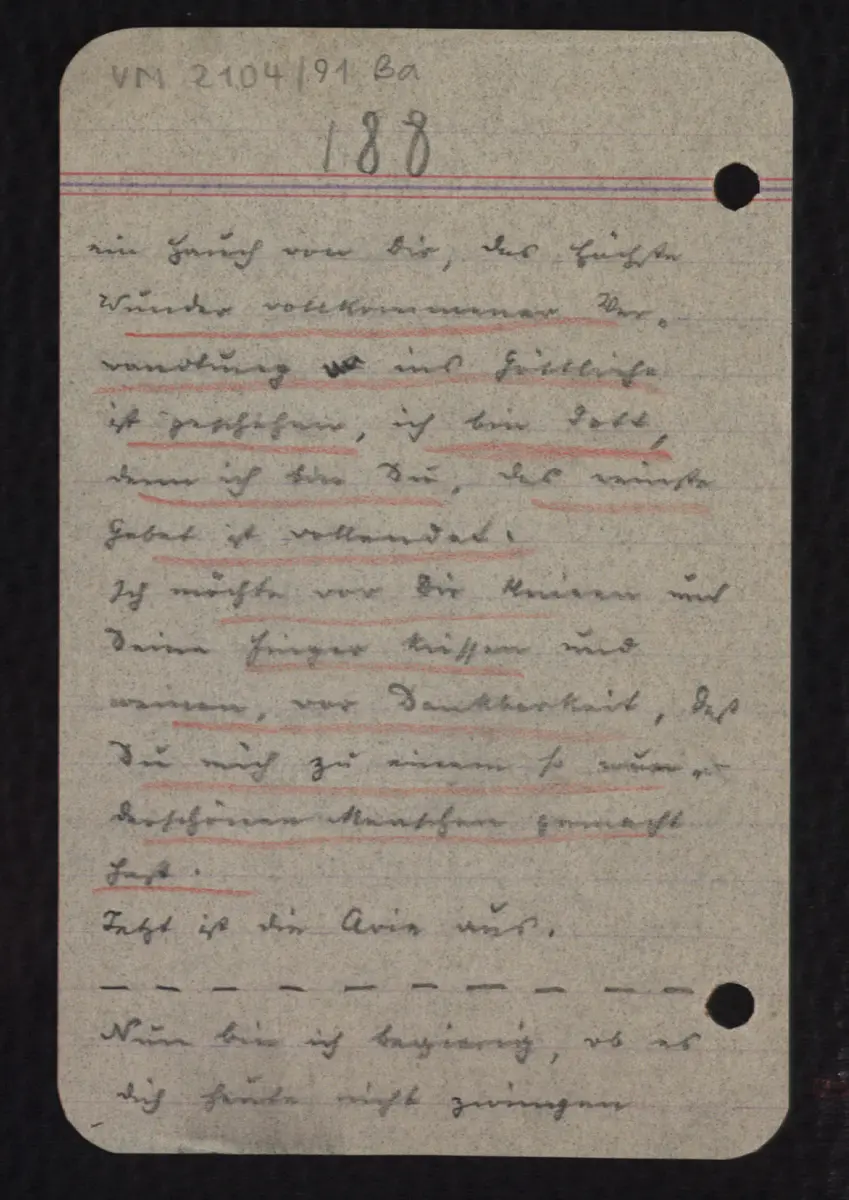 VM 2104/91 Ba
188
ein Hauch von Dir, das höchste
Wunder vollkommener Ver-
wandlung ins Göttliche
ist geschehen, ich bin Gott,
denn ich bin Du, das reinste
Gebet ist vollendet.
Ich möchte vor Dir knieen und
Deine Finger küssen und
weinen, vor Dankbarkeit, daß
Du mich zu einem so wun-
derschönen Menschen gemacht
hast.
Jetzt ist die Arie aus.
Nun bin ich begierig, ob es
dich heute nicht zwingen